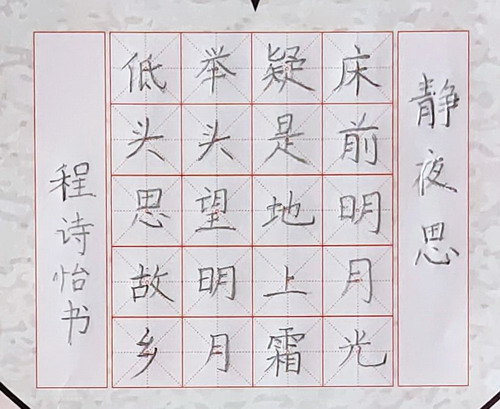 静夜思
床前明月光
疑是地上霜
举头望明月
低头思故乡
程诗怡书